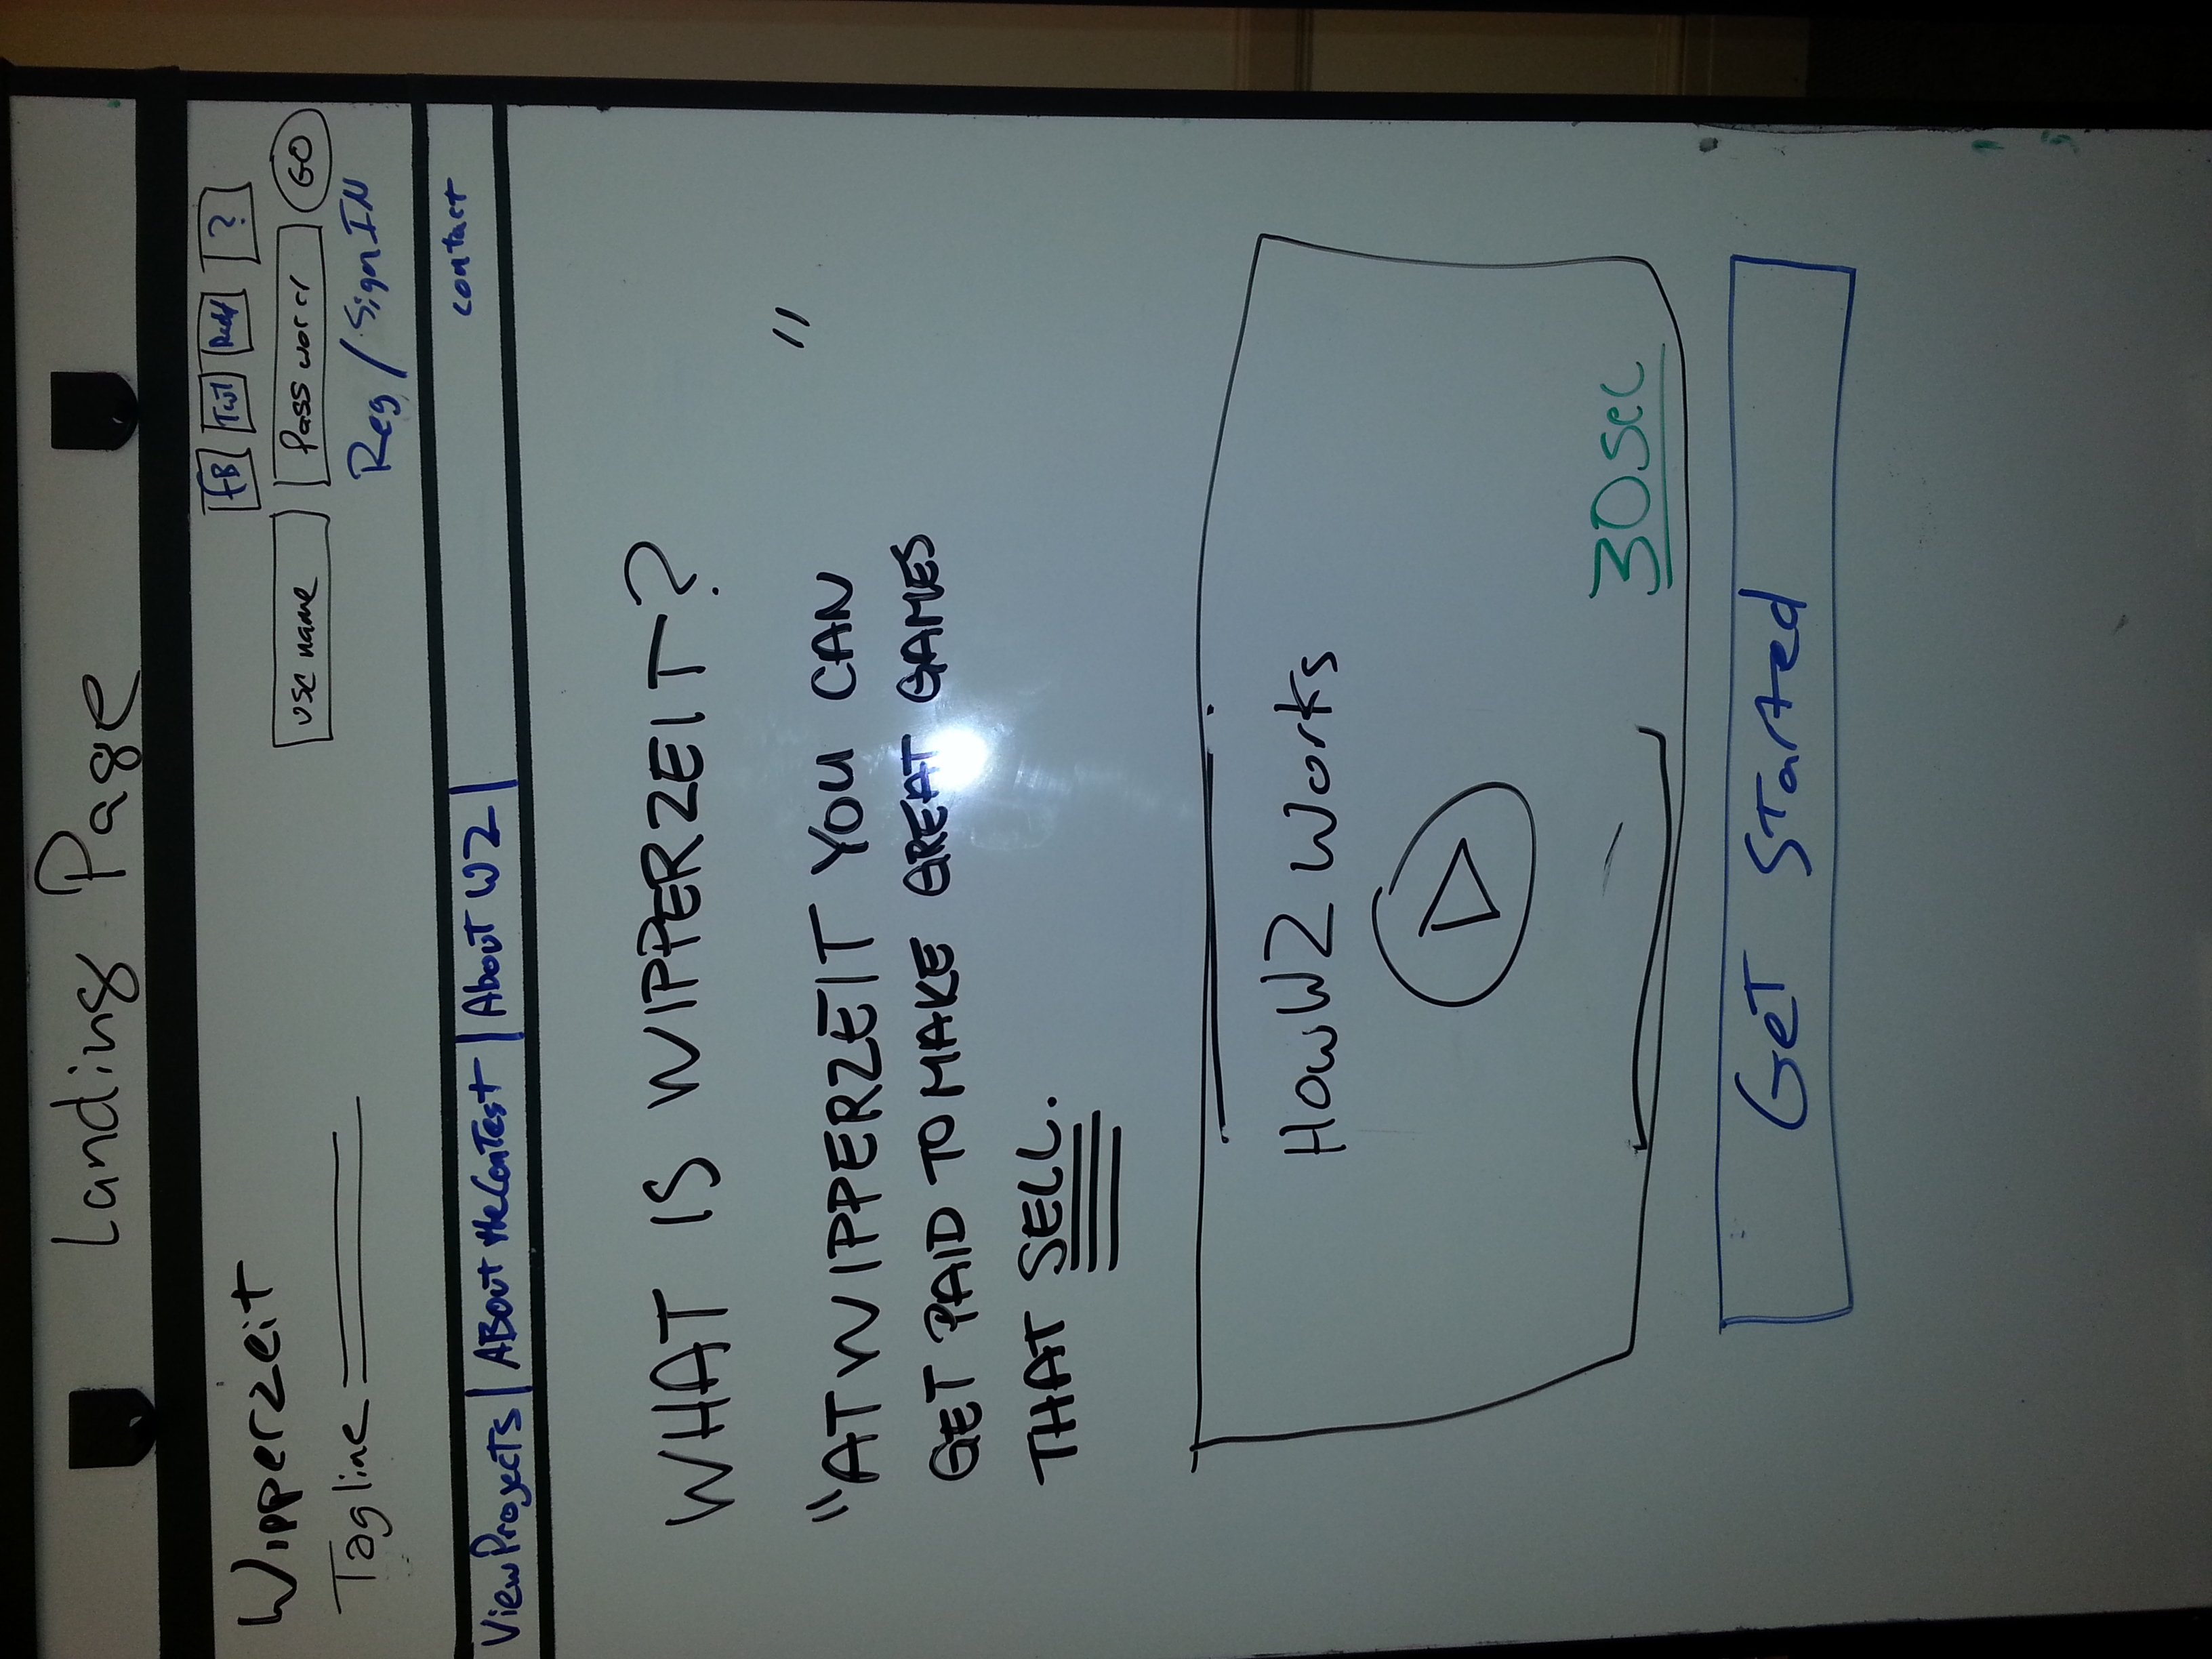 Landing Page
Wipperzeit
FB Twt Redd ?
use name Password GO
Tagline
Reg / Sign IN
View Projects | ABout the ConTest | About WZ |
contact
WHAT IS WIPPERZEIT?
"AT WIPPERZEIT YOU CAN "
GET PAID TO MAKE GREAT GAMES
THAT SELL.
How WZ Works
30 sec
GeT STarted